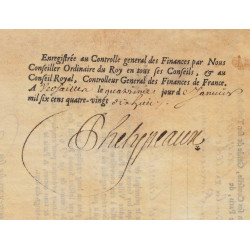 Enregistrée au Controlle general des Finances par Nous
Conseiller Ordinaire du Roy en tous ses Conseils, & au
Conseil Royal, Controlleur General des Finances de France.
A Versailles le jour de Janvier
mil six cens quatre-vingt
Phelypeaux